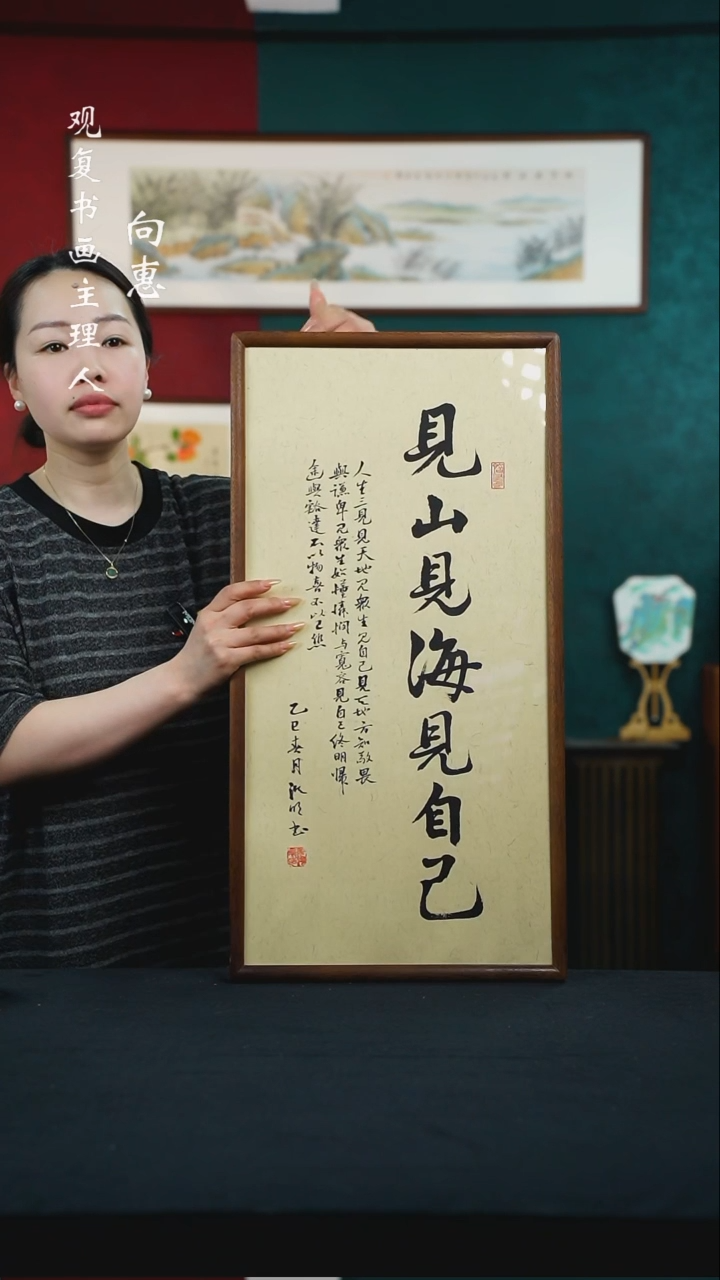 观复书画主理人
向惠
見山見海見自己
人生三見見天地見眾生見自己見天地方知敬畏
與謙卑見眾生好懂憐憫与寬容見自己終明歸
途與豁達不以物喜不以己悲
乙巳春月